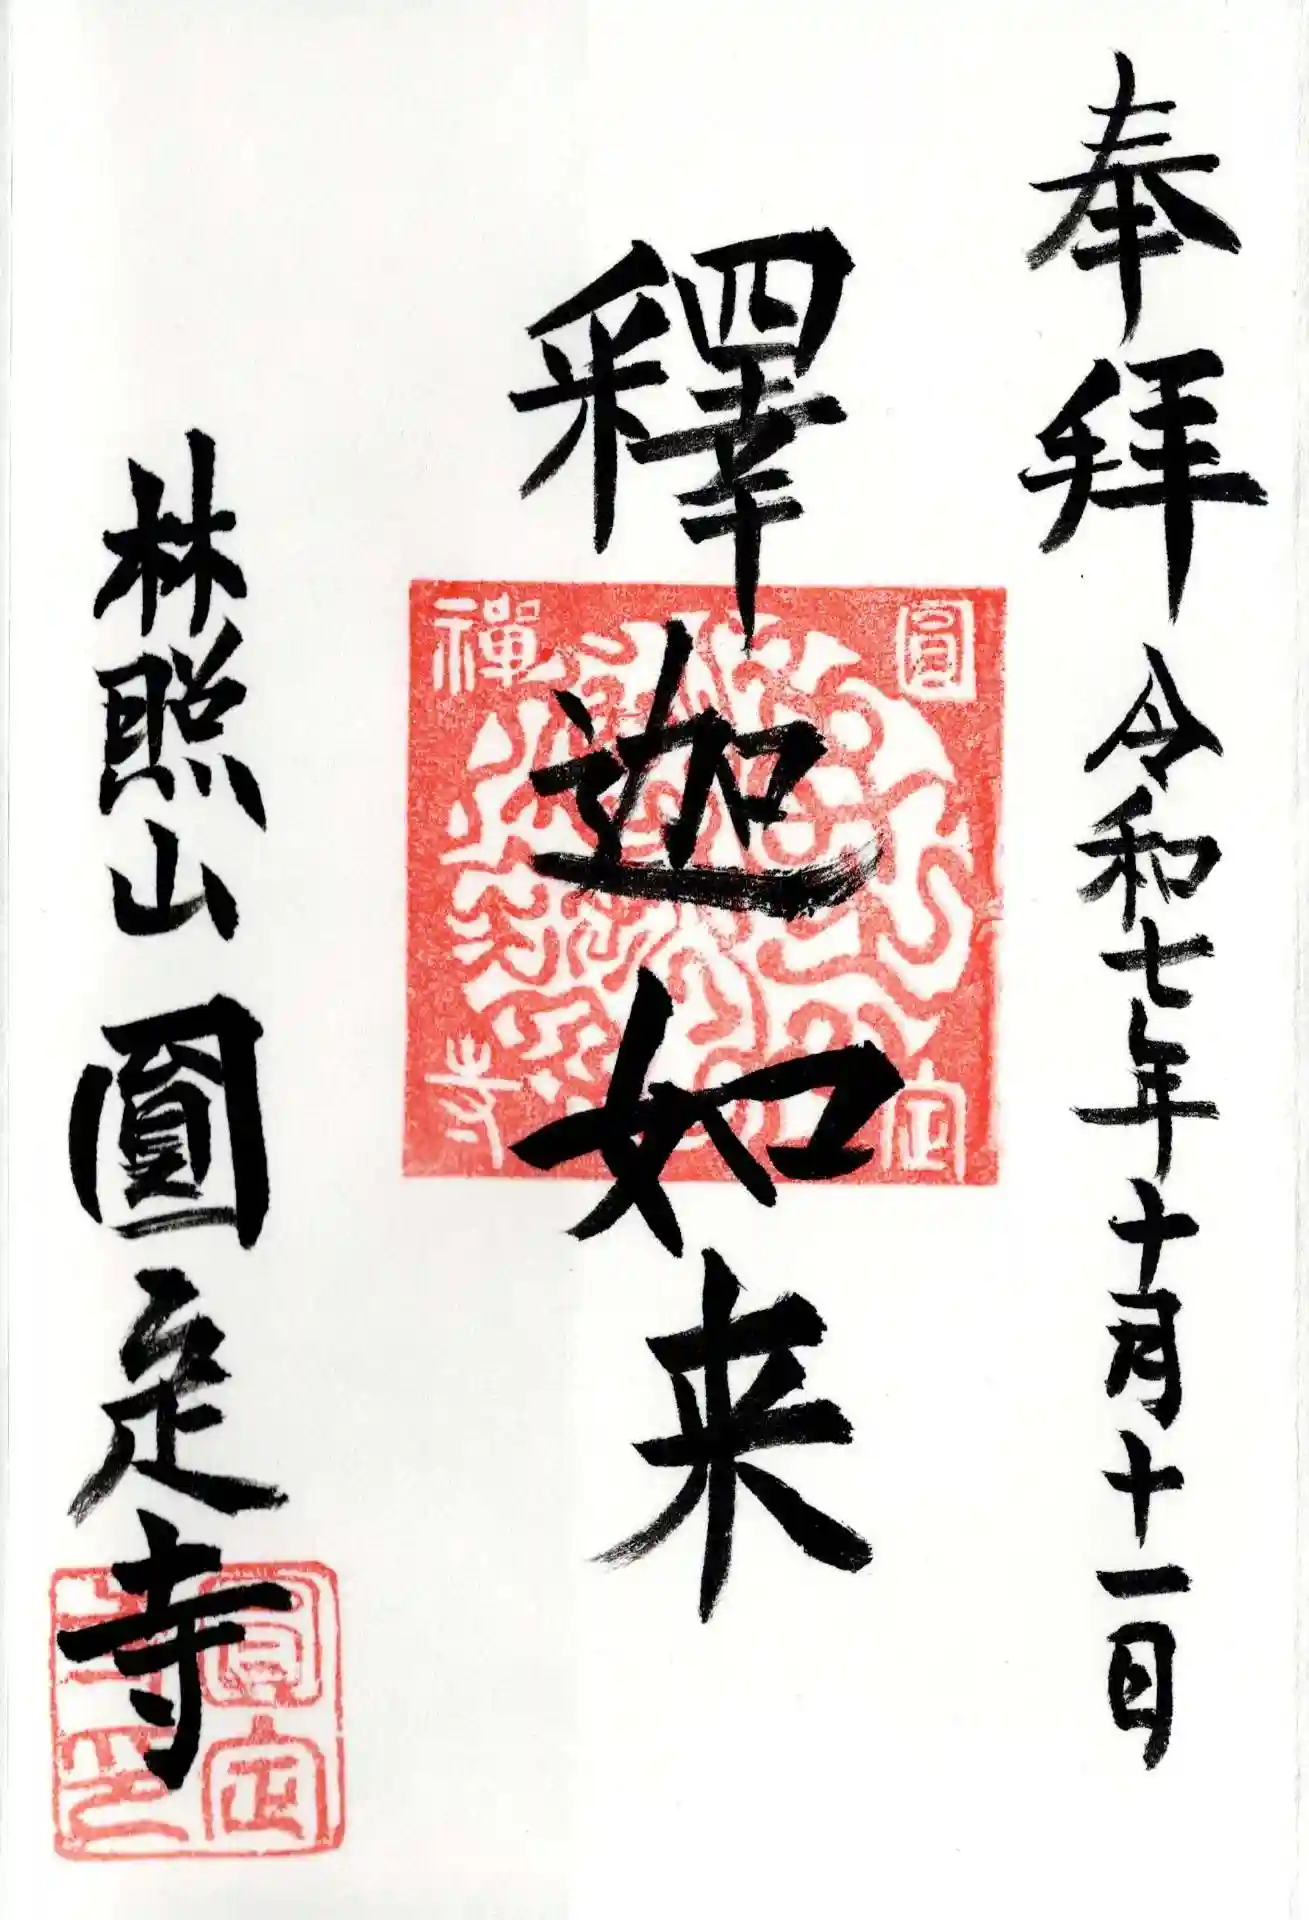 奉拜 令和七年十月十一日
釋迦如来
林照山 圓定寺
圓定禪寺
圓定寺印